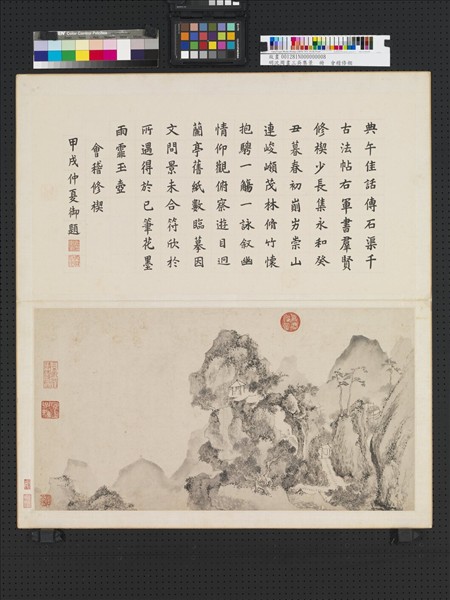 典午佳話傳石渠千
古法帖右軍書羣賢
修稧少長集永和癸
丑暮春初崱屴崇山
連峻嶺茂林脩竹懷
抱騁一觴一詠叙幽
情仰觀俯察遊目迥
蘭亭舊紙數臨摹因
文問景未合符欣於
所遇得於已筆花墨
雨霏玉壺
會稽修稧
甲戌仲夏御題